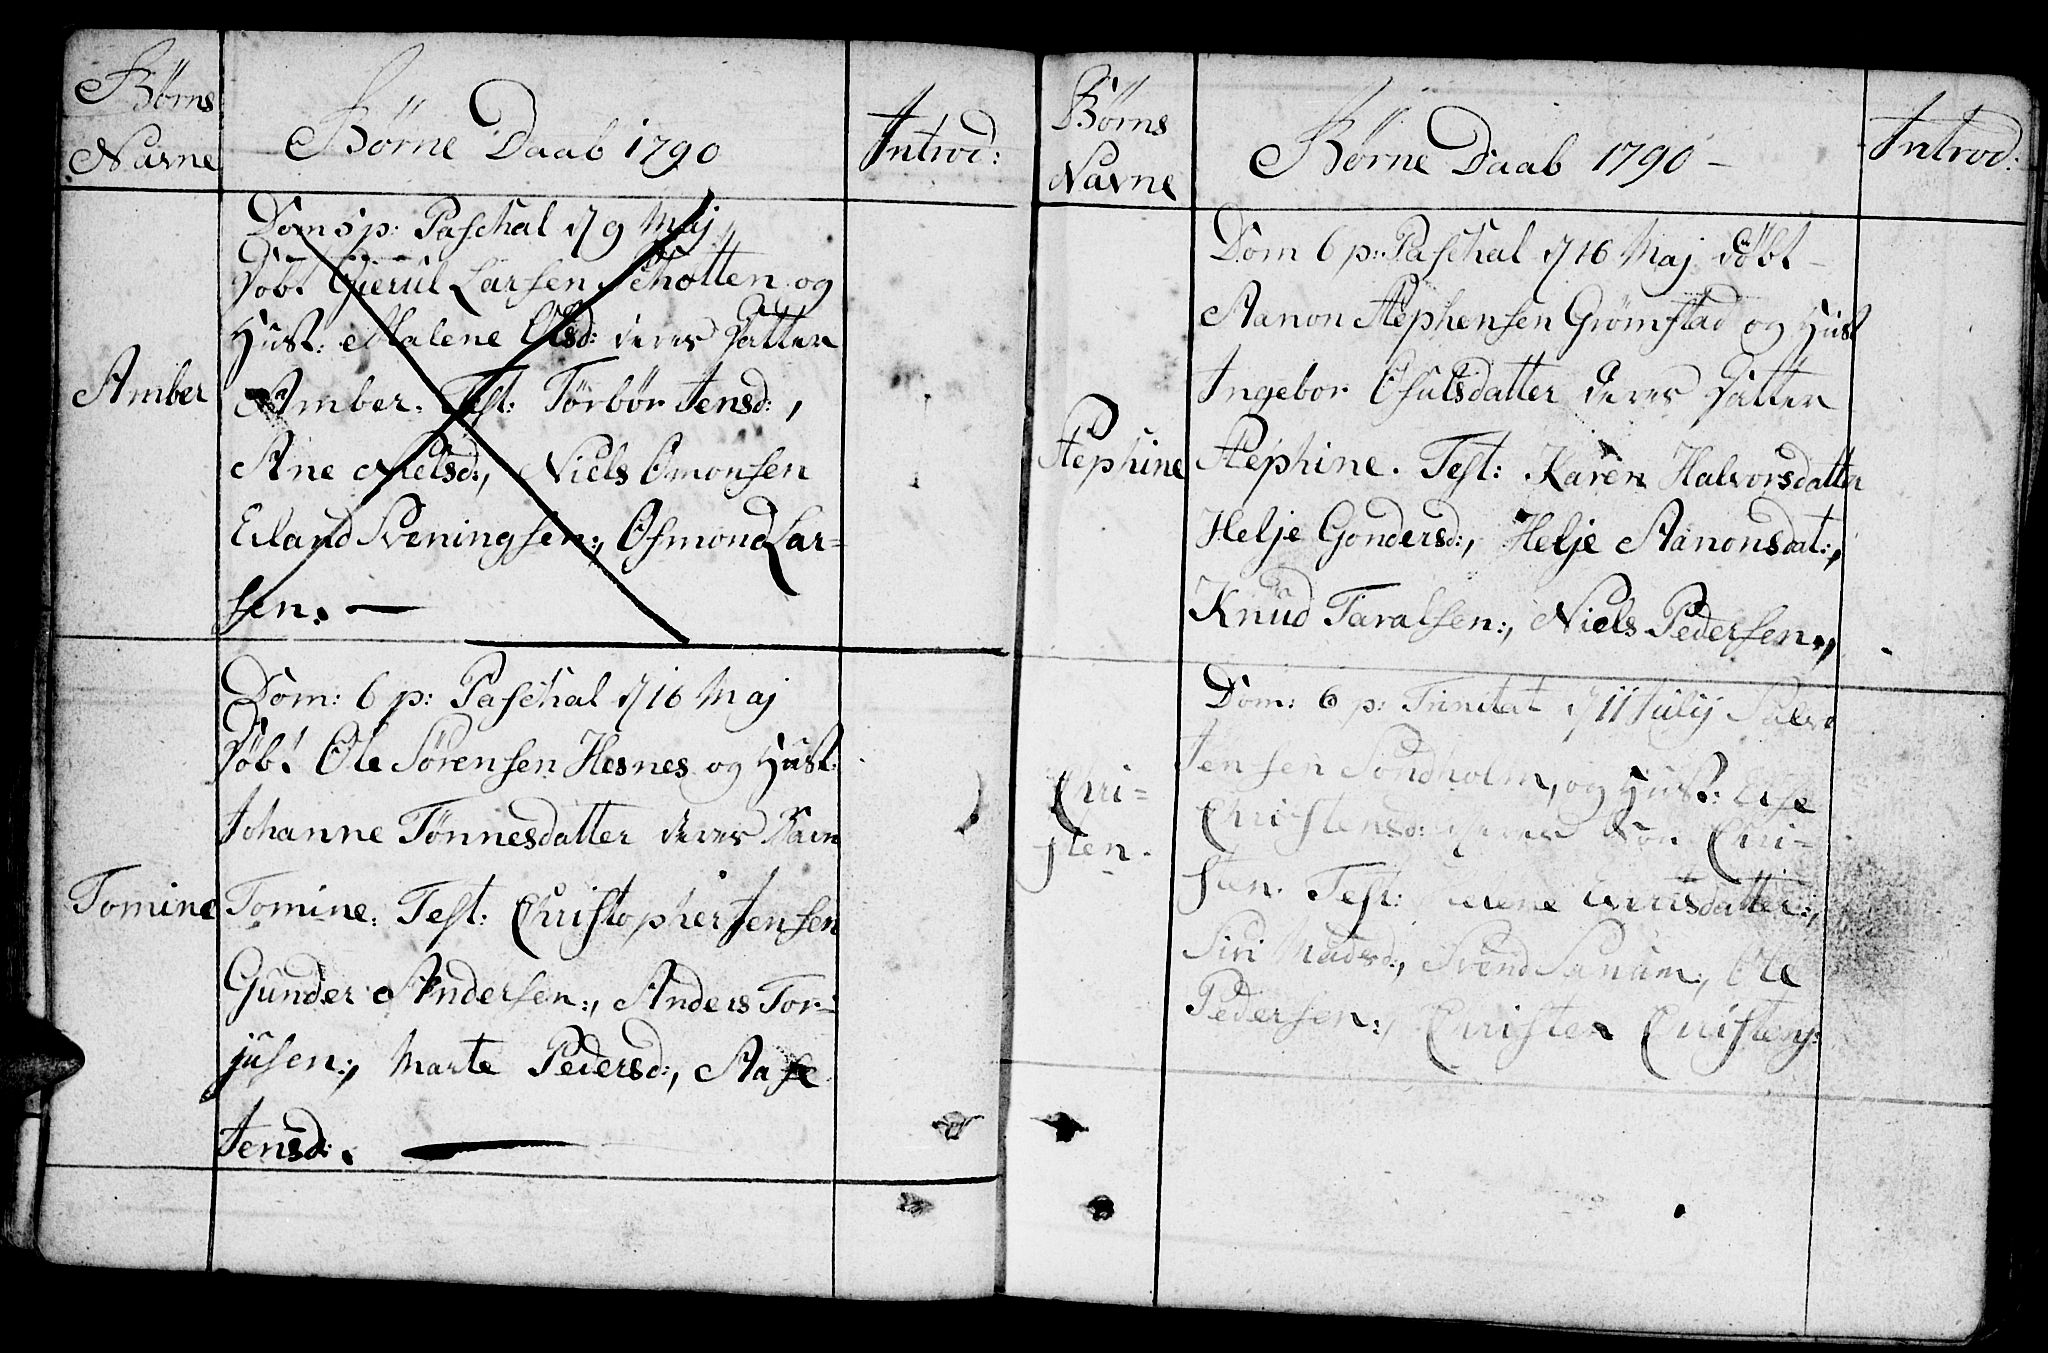 Børns
Navne
Børne Daab 1790
Introd:
Dom 5 p: Paschal d 9 Maj
Døbt Gierul Larsen Skotten og
Hust: Malene Olsd: deres Datter
Amber
Amber. Test: Torbør Jensd:,
Ane Nielsd:, Niels Omonsen
Erland Sveningsen:, Osmond Lar-
sen. —
Dom: 6 p: Paschal d 16 Maj
Døbt Ole Sørensen Hesnes og Hust:
Johanne Tønnesdatter deres Barn
Tomine
Tomine: Test: Christopher Jensen
Gunder Andersen:, Anders Tor-
jusen:, Marte Pedersd:, Aase
Jensd:. —
Børns
Navne
Børne Daab 1790 –
Introd:
Dom 6 p: Paschal d 16 Maj døbt –
Aanon Stephensen Grømstad og Hust
Ingebor Osulsdatter deres Datter
Stephine
Stephine. Test: Karen Halvorsdatter
Helje Gondersd:, Helje Aanonsdat:,
Knud Taralsen:, Niels Pedersen.,
Dom: 6 p: Trinitat d 11 July
Jensen Sondholm, og Hust: Else
Chri-
sten.
Christensd: deres Søn Chri-
sten. Test:
Siri Madsd:, Svend Sanum:, Ole
Pedersen:, Christen Christens: